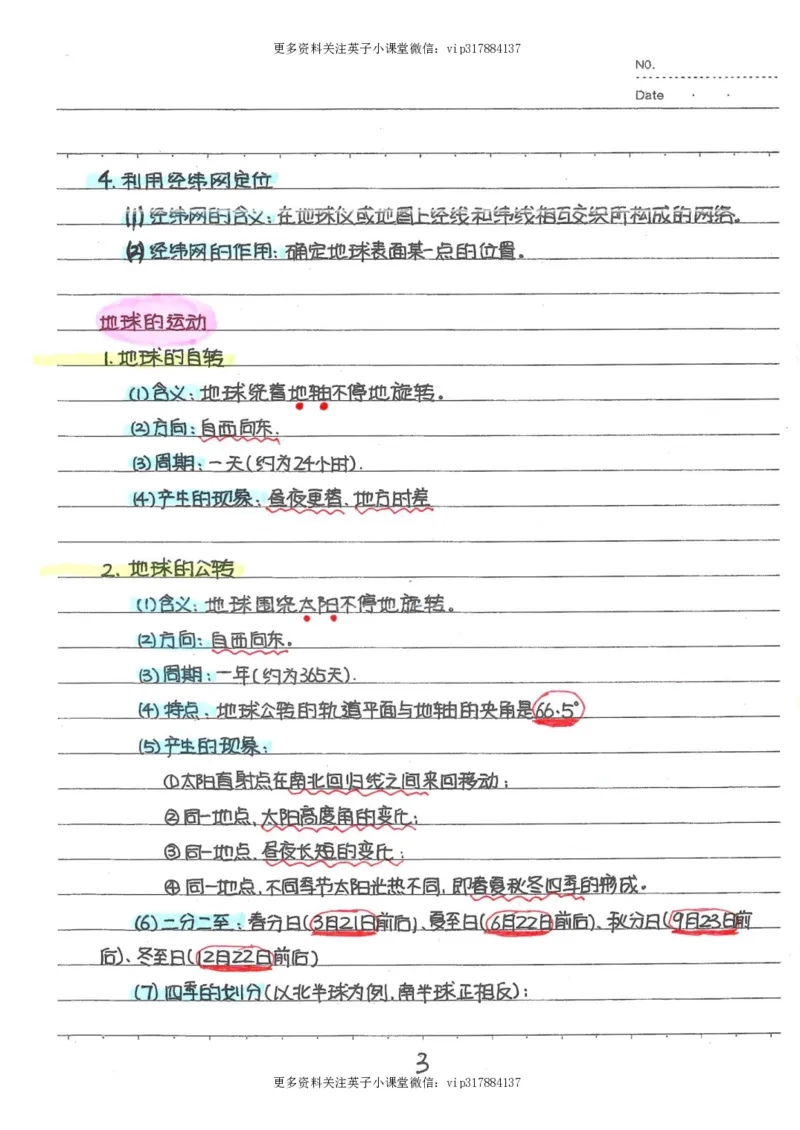 更多资料关注英子小课堂微信：vip317884137
NO.
Date
4.利用经纬网定位
(1)经纬网的含义：在地球仪或地图上经线和纬线相互交织所构成的网络。
(2)经纬网的作用：确定地球表面某一点的位置。
地球的运动
1.地球的自转
(1)含义：地球绕着地轴不停地旋转。
(2)方向：自西向东.
(3)周期：一天(约为24小时).
(4)产生的现象：昼夜更替、地方时差
2.地球的公转
(1)含义：地球围绕太阳不停地旋转。
(2)方向：自西向东。
(3)周期：一年(约为365天).
(4)特点：地球公转的轨道平面与地轴的夹角是66.5°
(5)产生的现象：
①太阳直射点在南北回归线之间来回移动；
②同一地点，太阳高度角的变化；
③同一地点，昼夜长短的变化；
④同一地点，不同季节太阳光热不同，即春夏秋冬四季的形成。
(6)二分二至：春分日(3月21日前后)、夏至日(6月22日前后)、秋分日(9月23日前
后)、冬至日(12月22日前后)
(7)四季的划分(以北半球为例，南半球正相反)：
3
更多资料关注英子小课堂微信：vip317884137